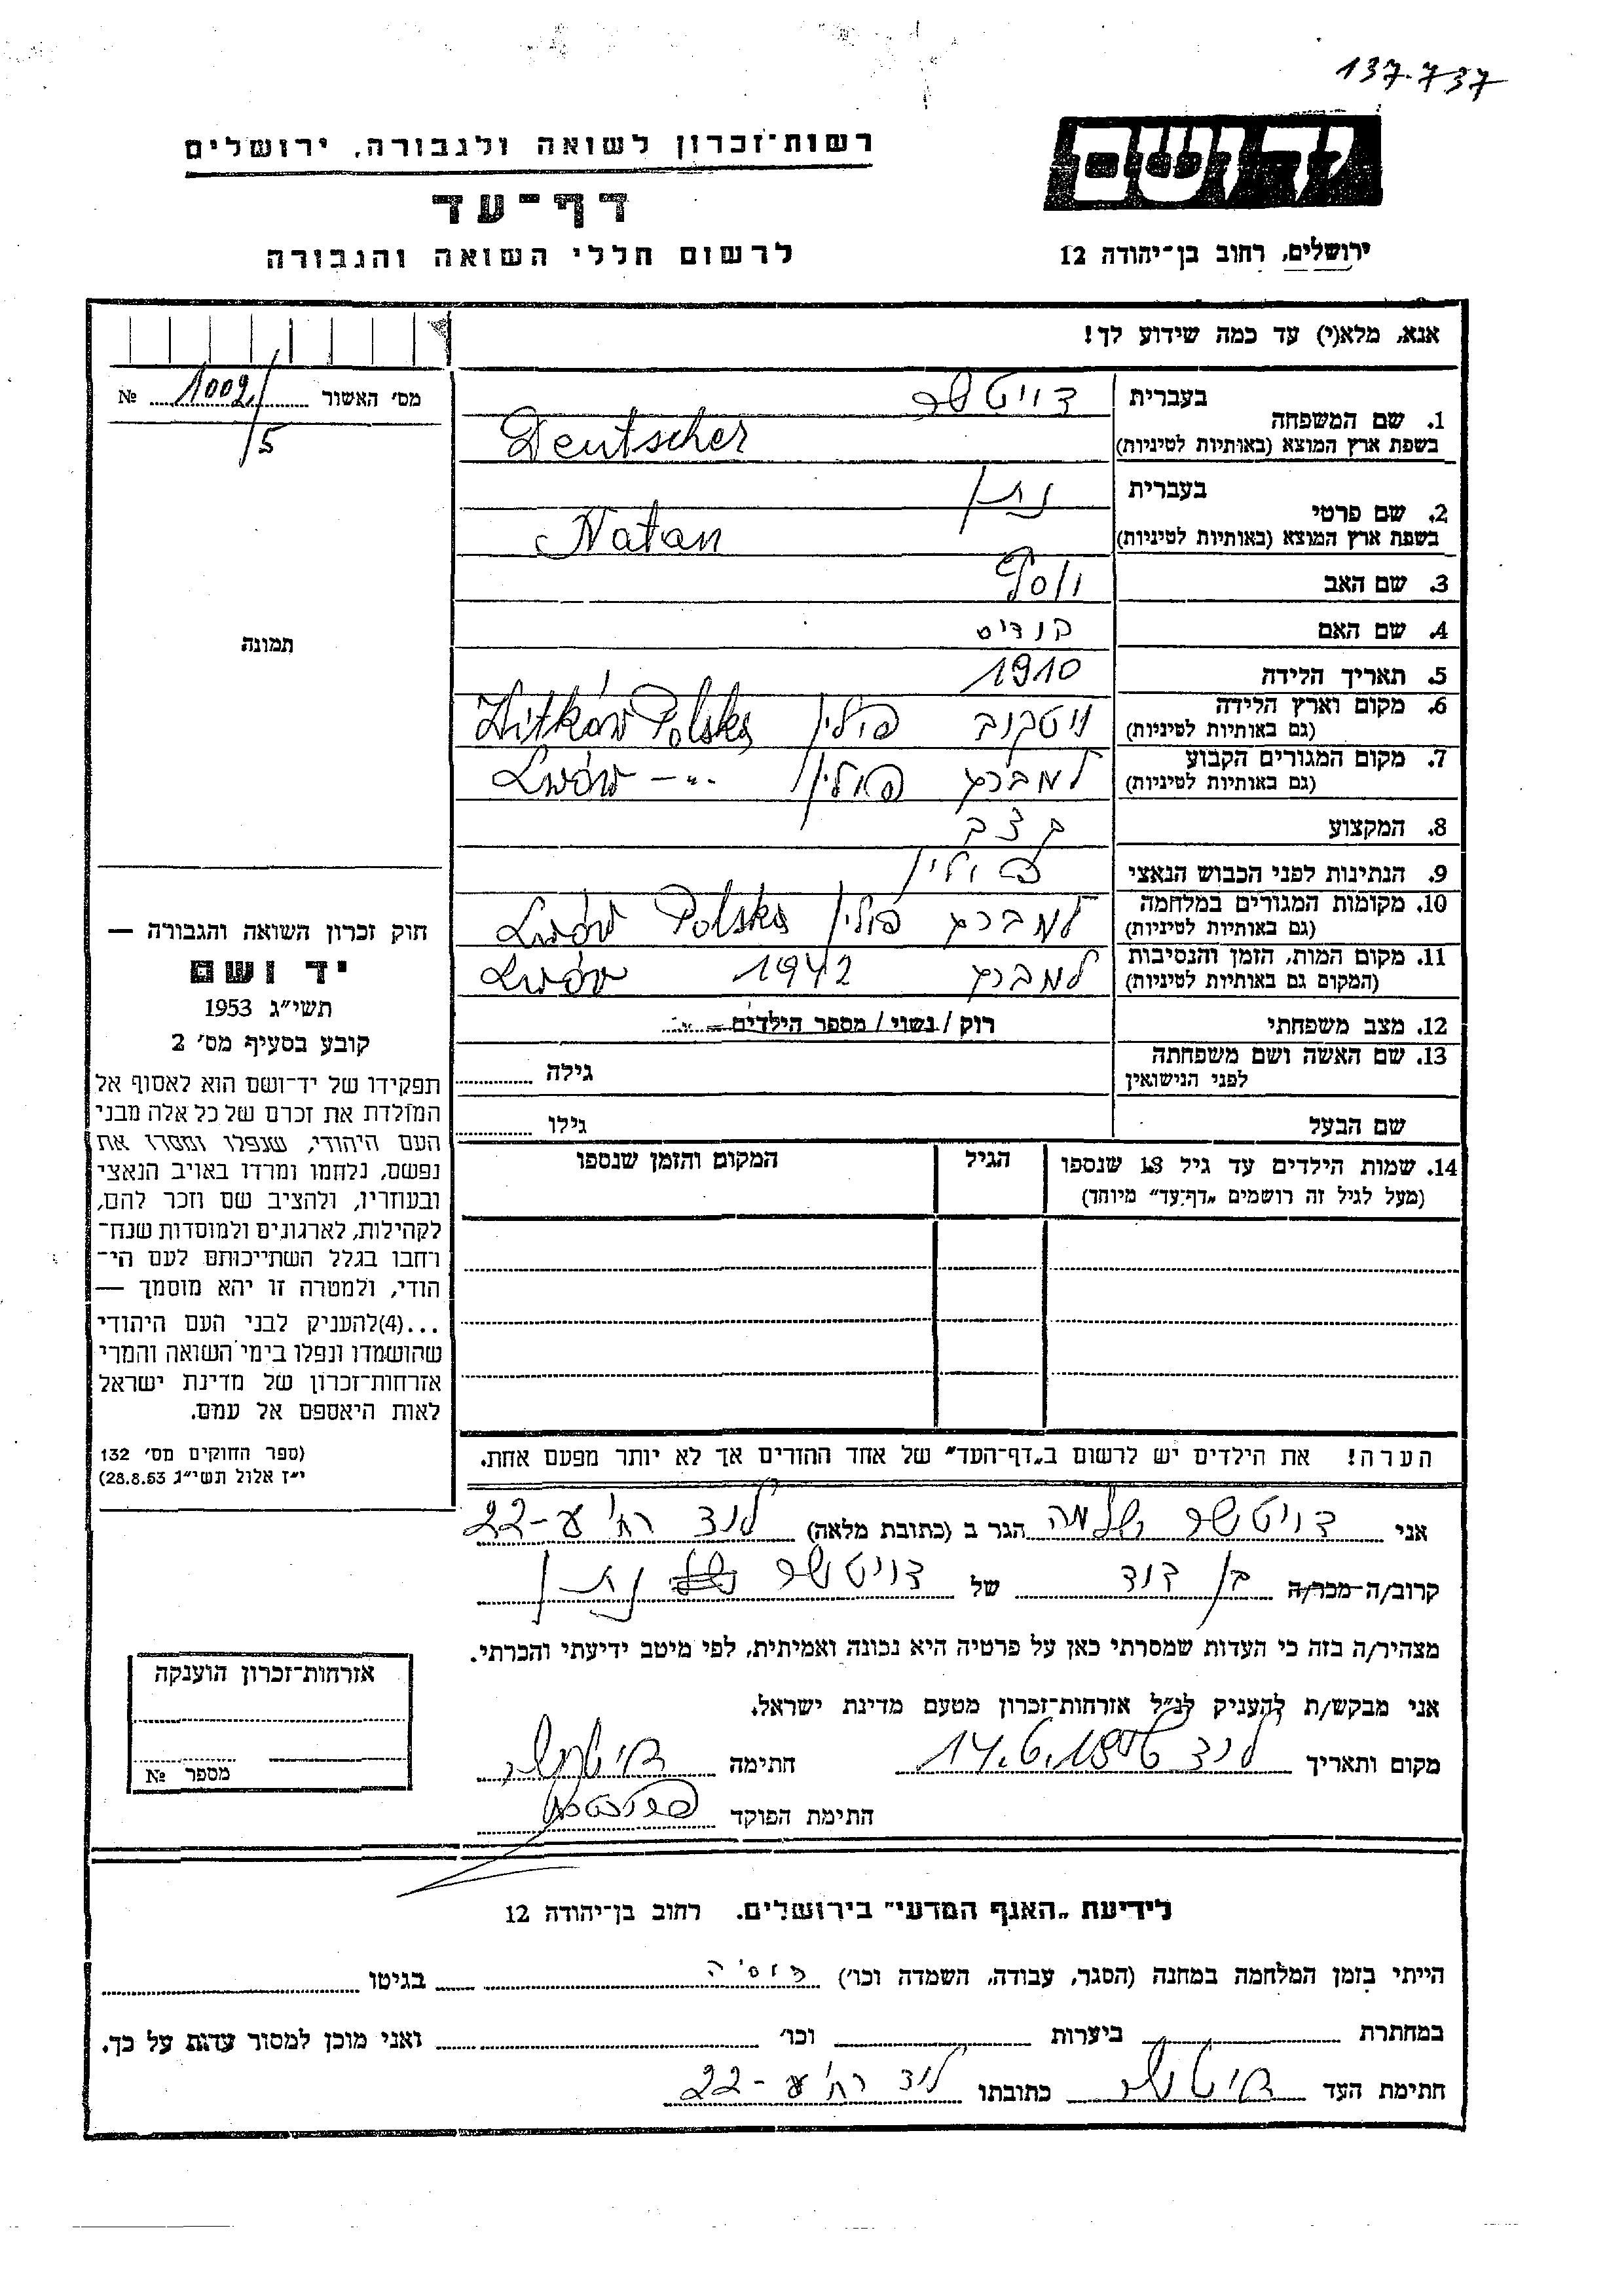 137.737
רשות־זכרון לשואה ולגבורה, ירושלים
דף־עד
לרשום חללי השואה והגבורה
יד ושם
ירושלים, רחוב בן־יהודה 12
אנא, מלא(י) עד כמה שידוע לך!
מס׳ האשור 1002/ №
/5
תמונה
1. שם המשפחה
בעברית דויטשר
בשפת ארץ המוצא (באותיות לטיניות) Deutscher
2. שם פרטי
בעברית נתן
בשפת ארץ המוצא (באותיות לטיניות) Natan
3. שם האב יוסף
4. שם האם
5. תאריך הלידה 1910
6. מקום וארץ הלידה ויטקוב פולין Witków Polska
(גם באותיות לטיניות)
7. מקום המגורים הקבוע למברג פולין Lwów -"-
(גם באותיות לטיניות)
8. המקצוע קצב
9. הנתינות לפני הכבוש הנאצי פולין
10. מקומות המגורים במלחמה למברג פולין Lwów Polska
(גם באותיות לטיניות)
11. מקום המות, הזמן והנסיבות למברג 1942 Lwów
(המקום גם באותיות לטיניות)
12. מצב משפחתי רוק / נשוי / מספר הילדים
13. שם האשה ושם משפחתה
לפני הנישואין גילה
שם הבעל גילו
14. שמות הילדים עד גיל 18 שנספו הגיל המקום והזמן שנספו
(מעל לגיל זה רושמים „דף־עד” מיוחד)
הערה! את הילדים יש לרשום ב„דף־העד” של אחד ההורים אך לא יותר מפעם אחת.
חוק זכרון השואה והגבורה —
יד ושם
תשי״ג 1953
קובע בסעיף מס׳ 2
תפקידו של יד־ושם הוא לאסוף אל
המולדת את זכרם של כל אלה מבני
העם היהודי, שנפלו ומסרו את
נפשם, נלחמו ומרדו באויב הנאצי
ובעוזריו, ולהציב שם וזכר להם,
לקהילות, לארגונים ולמוסדות שנח־
רחבו בגלל השתייכותם לעם הי־
הודי, ולמטרה זו יהא מוסמך —
...(4)להעניק לבני העם היהודי
שהושמדו ונפלו בימי השואה והמרי
אזרחות־זכרון של מדינת ישראל
לאות היאספם אל עמם.
(ספר החוקים מס׳ 132
י״ז אלול תשי״ג 28.8.53)
אני דויטשר שלמה הגר ב (כתובת מלאה) לוד רח׳ ע-22
קרוב/ה מכר/ה בן דוד של דויטשר נתן
מצהיר/ה בזה כי העדות שמסרתי כאן על פרטיה היא נכונה ואמיתית, לפי מיטב ידיעתי והכרתי.
אני מבקש/ת להעניק לנ״ל אזרחות־זכרון מטעם מדינת ישראל.
מקום ותאריך לוד חתימה דויטשר
חתימת הפוקד
אזרחות־זכרון הוענקה
מספר №
לידיעת „האגף המדעי” בירושלים. רחוב בן־יהודה 12
הייתי בזמן המלחמה במחנה (הסגר, עבודה, השמדה וכו׳) רוסיה בגיטו
במחתרת ביערות וכו׳ ואני מוכן למסור עדות על כך.
חתימת העד דויטשר כתובתו לוד רח׳ ע-22